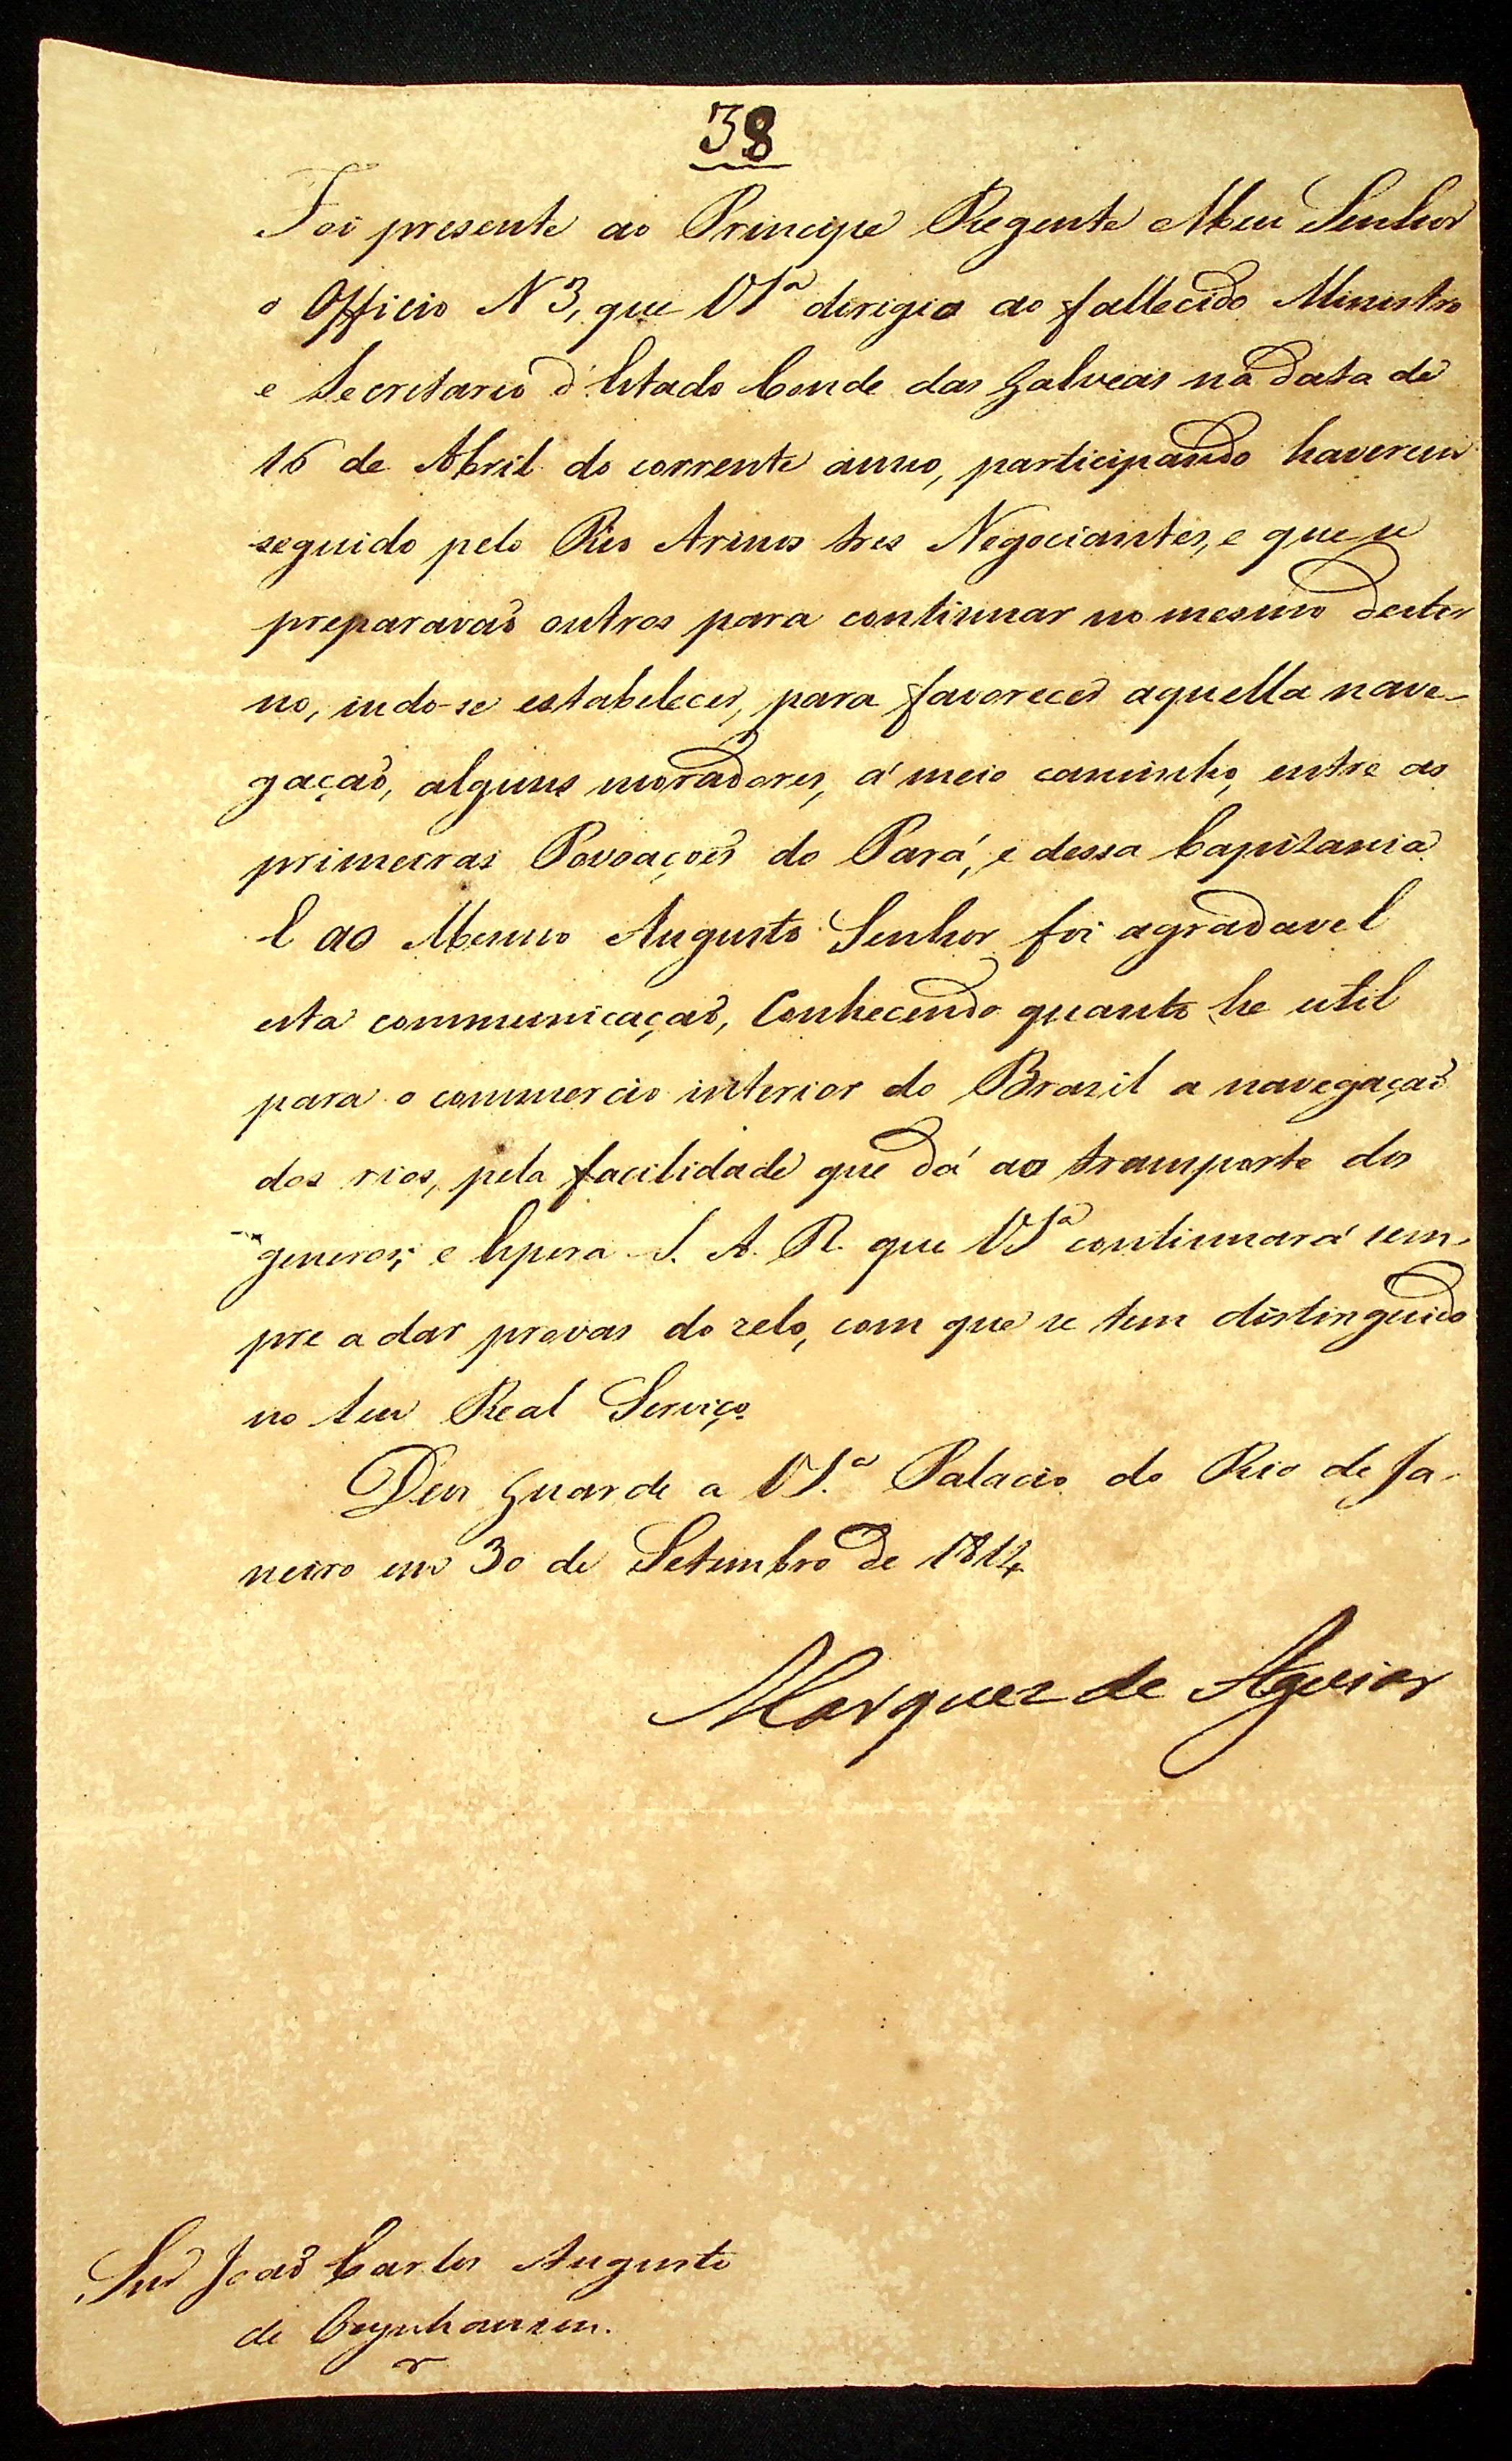 38
Foi presente ao Principe Regente Meu Senhor
o Officio N 3, que VSª dirigio ao fallecido Ministro
e Secretario d'Estado Conde das Galveas na data de
16 de Abril do corrente anno, participando haverem
seguido pelo Rio Arinos tres Negociantes, e que se
preparavaõ outros para continuar no mesmo desti-
no, indo-se estabelecer, para favorecer aquella nave-
gaçaõ, alguns moradores, á meio caminho, entre as
primeiras Povoaçoẽs do Pará, e dessa Capitania.
E ao Mesmo Augusto Senhor foi agradavel
esta communicaçaõ, Conhecendo quanto he util
para o commercio interior do Brazil a navegaçaõ
dos rios, pela facilidade que dá ao transporte dos
generos; e Espera S. A. R. que VSª continuará sem-
pre a dar provas do zelo, com que se tem distinguido
no Seu Real Serviço.
Deos Guarde a VS.ª Palacio do Rio de Ja-
neiro em 30 de Setembro de 1814
Marquez de Aguiar
Snr João Carlos Augusto
de Oeynhausen.